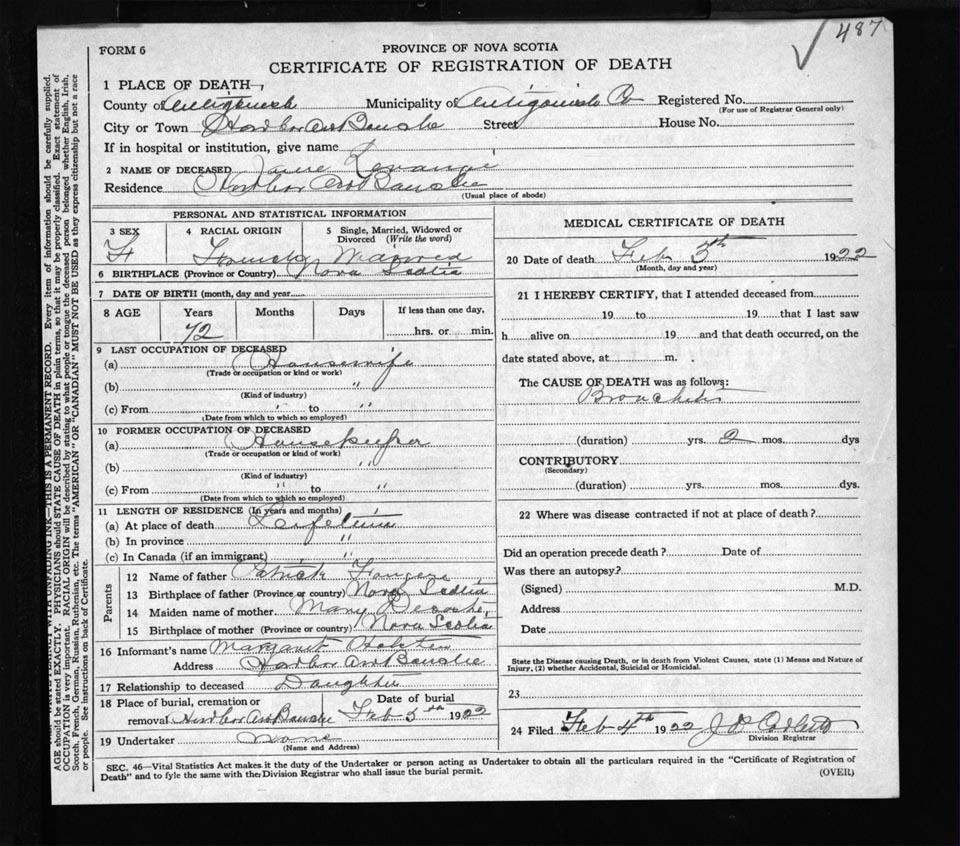 487
FORM 6
PROVINCE OF NOVA SCOTIA
CERTIFICATE OF REGISTRATION OF DEATH
1 PLACE OF DEATH
County of Antigonish Municipality of Antigonish Co Registered No.
(For use of Registrar General only)
City or Town Harbor Au Bouche Street House No.
If in hospital or institution, give name
2 NAME OF DECEASED Jane
Residence Harbor Au Bouche
(Usual place of abode)
PERSONAL AND STATISTICAL INFORMATION
3 SEX 4 RACIAL ORIGIN 5 Single, Married, Widowed or Divorced (Write the word)
F French
6 BIRTHPLACE (Province or Country) Nova Scotia
7 DATE OF BIRTH (month, day and year)
8 AGE Years Months Days If less than one day,
72 hrs. or min.
9 LAST OCCUPATION OF DECEASED
(a) Housewife
(Trade or occupation or kind or work)
(b) "
(Kind of industry)
(c) From " to "
(Date from which to which so employed)
10 FORMER OCCUPATION OF DECEASED
(a) Housekeeper
(Trade or occupation or kind of work)
(b) "
(Kind of industry)
(c) From " to "
(Date from which to which so employed)
11 LENGTH OF RESIDENCE (In years and months)
(a) At place of death Lifetime
(b) In province "
(c) In Canada (if an immigrant) "
Parents
12 Name of father Patrick Fougere
13 Birthplace of father (Province or country) Nova Scotia
14 Maiden name of mother Mary
15 Birthplace of mother (Province or country) Nova Scotia
16 Informant's name Margaret
Address Harbor Au Bouche
17 Relationship to deceased Daughter
18 Place of burial, cremation or Date of burial
removal Harbor Au Bouche Feb 5th 1922
19 Undertaker none
(Name and Address)
MEDICAL CERTIFICATE OF DEATH
20 Date of death Feb 3th 1922
(Month, day and year)
21 I HEREBY CERTIFY, that I attended deceased from
19 to 19 that I last saw
h alive on 19 and that death occurred, on the
date stated above, at m.
The CAUSE OF DEATH was as follows:
Bronchitis
(duration) yrs. 2 mos. dys
CONTRIBUTORY
(Secondary)
(duration) yrs. mos. dys.
22 Where was disease contracted if not at place of death?
Did an operation precede death? Date of
Was there an autopsy?
(Signed) M.D.
Address
Date
State the Disease causing Death, or in death from Violent Causes, state (1) Means and Nature of
Injury, (2) whether Accidental, Suicidal or Homicidal.
23
24 Filed Feb 4th 1922
Division Registrar
SEC. 46—Vital Statistics Act makes it the duty of the Undertaker or person acting as Undertaker to obtain all the particulars required in the "Certificate of Registration of
Death" and to fyle the same with the Division Registrar who shall issue the burial permit. (OVER)
WITH UNFADING INK—THIS IS A PERMANENT RECORD. Every item of information should be carefully supplied.
AGE should be stated EXACTLY. PHYSICIANS should STATE CAUSE OF DEATH in plain terms, so that it may be properly classified. Exact statement of
OCCUPATION is very important. RACIAL ORIGIN will be described by stating to what people or tongue the deceased person belonged whether English, Irish,
Scotch, French, German, Russian, Ruthenian, etc. The terms "AMERICAN" OR "CANADIAN" MUST NOT BE USED as they express citizenship but not a race
or people. See instructions on back of Certificate.